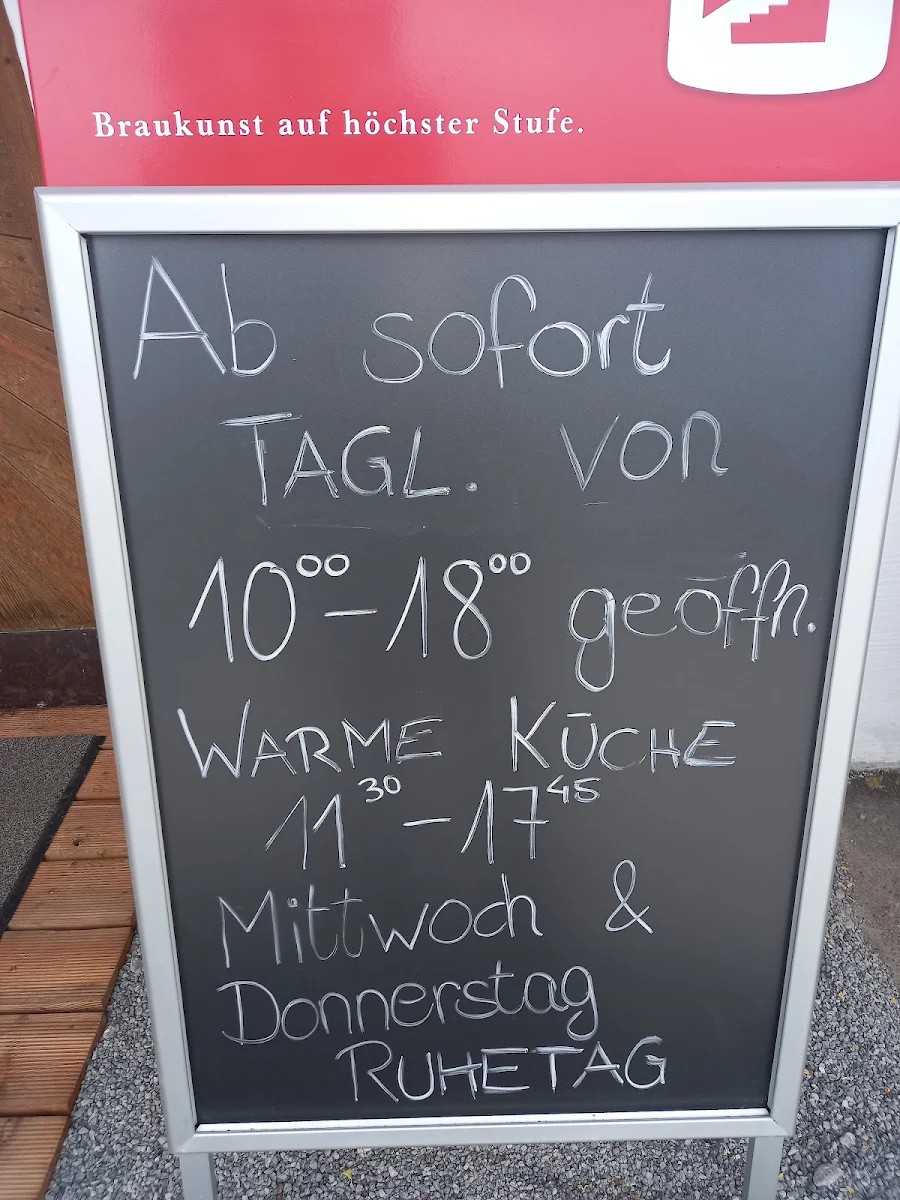 Braukunst auf höchster Stufe.
Ab sofort
TAGL. von
10⁰⁰ – 18⁰⁰ geöffn.
WARME KÜCHE
11³⁰ – 17⁴⁵
Mittwoch &
Donnerstag
RUHETAG